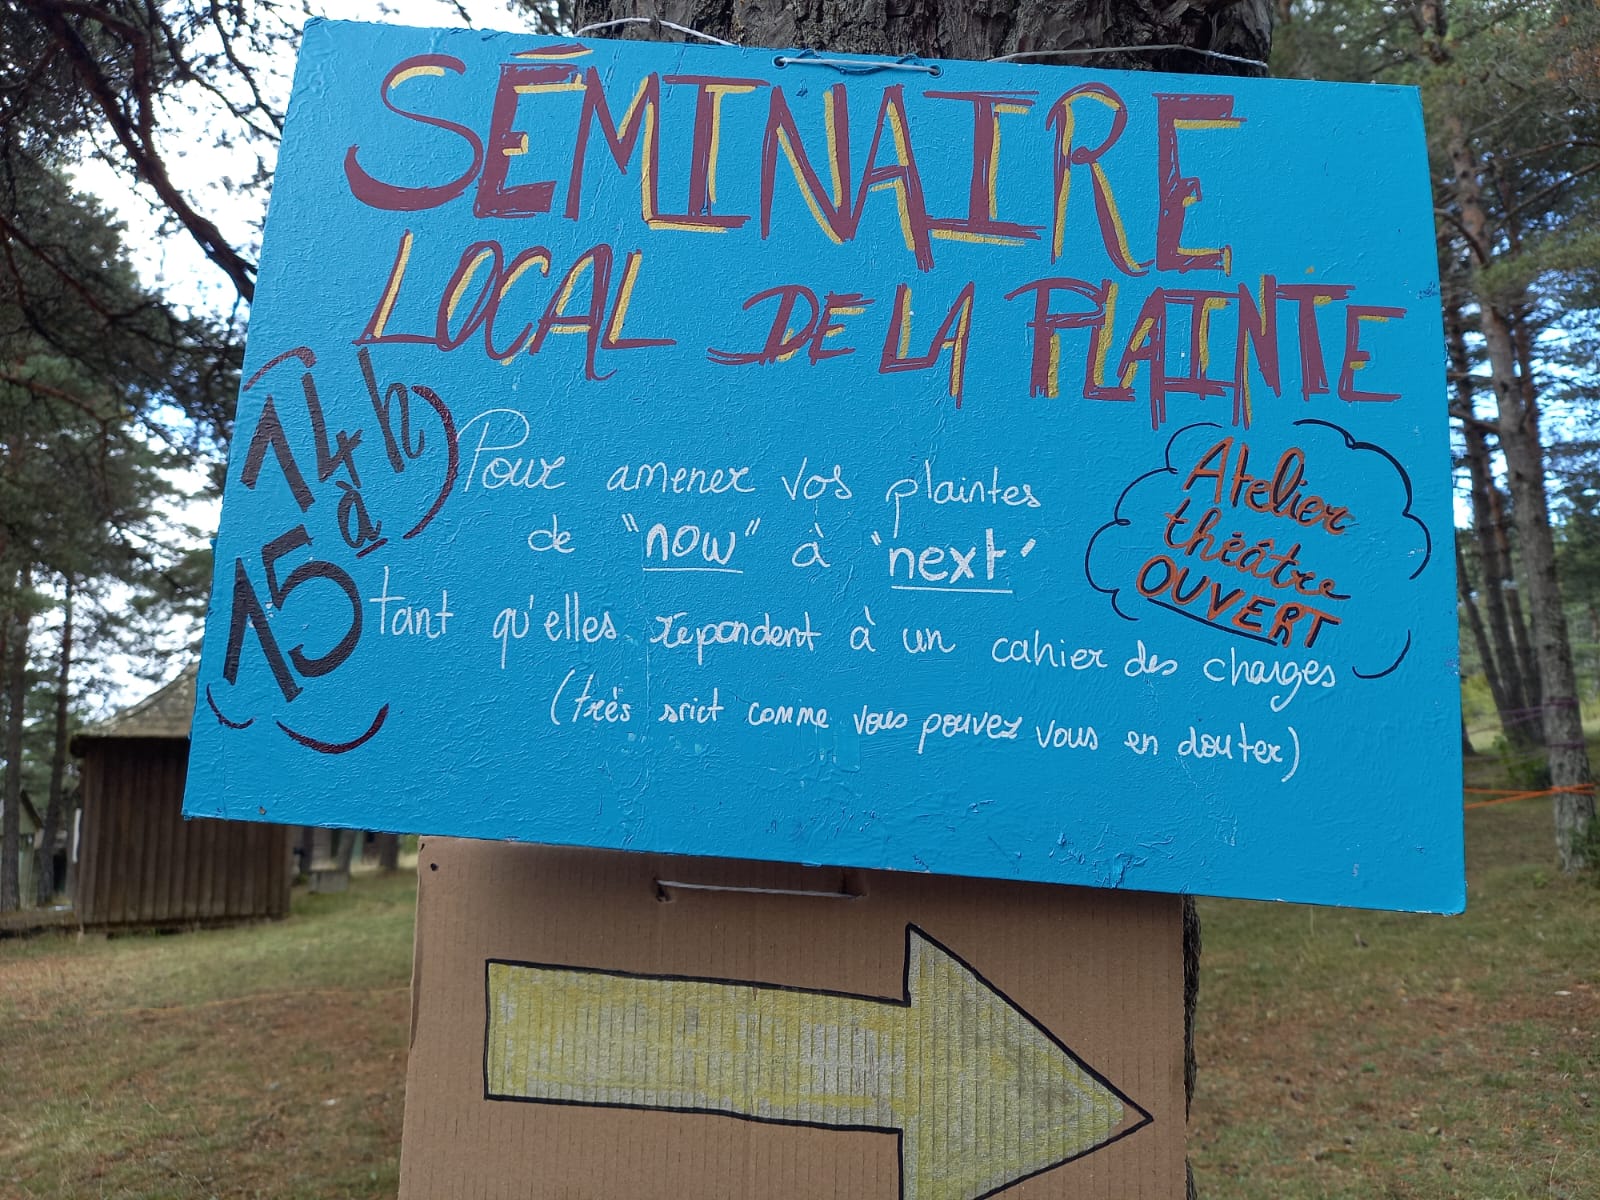 SÉMINAIRE
LOCAL DE LA PLAINTE
14h
à
15
Pour amener vos plaintes
de "now" à "next"
tant qu'elles répondent à un cahier des charges
(très srict comme vous pouvez vous en douter)
Atelier
théâtre
OUVERT